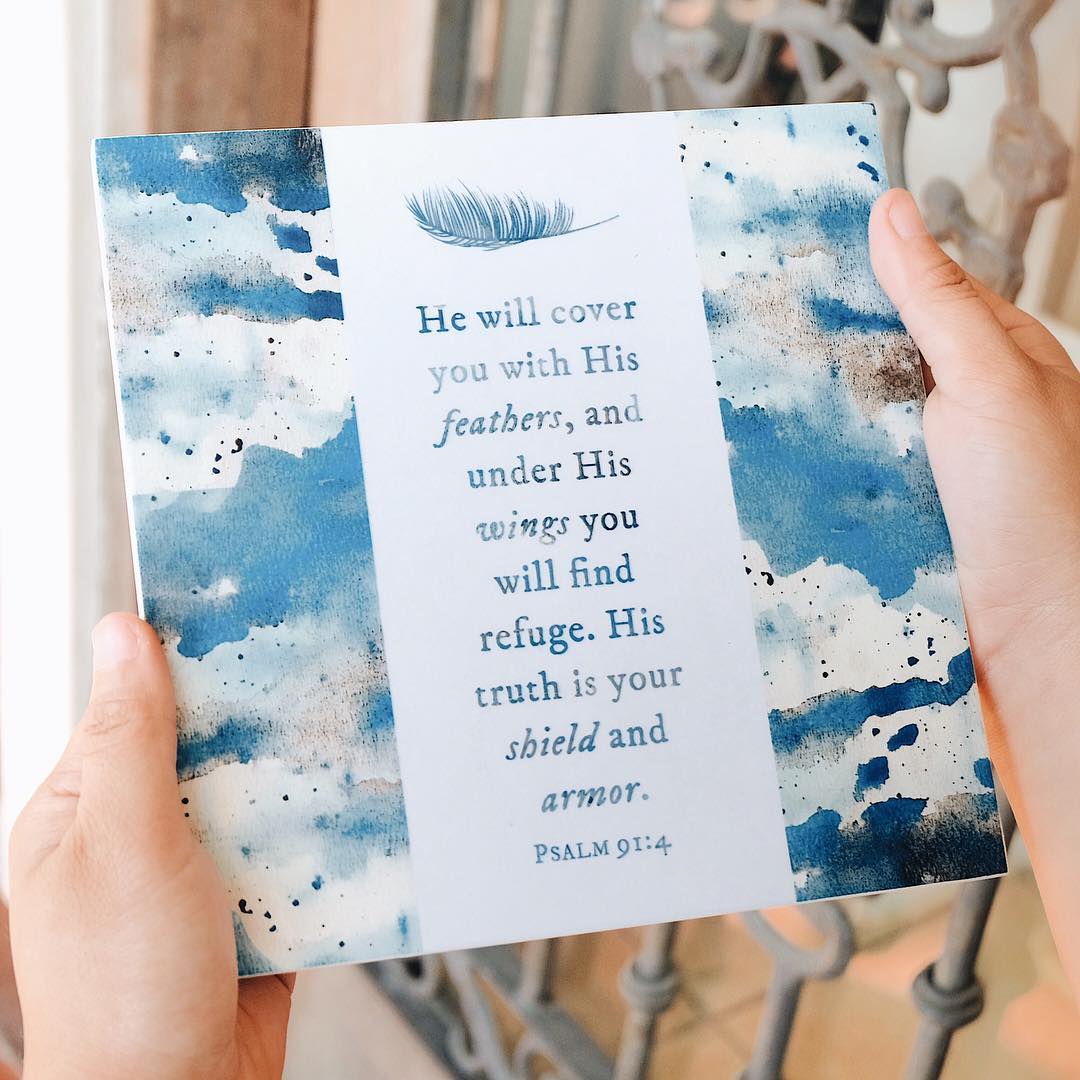 He will cover
you with His
feathers, and
under His
wings you
will find
refuge. His
truth is your
shield and
armor.
PSALM 91:4